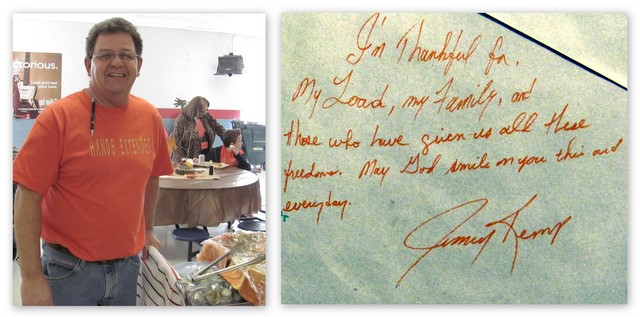 torious.
got milk?
HANDS EXTENDED
I'm Thankful for,
My Load, my Family, and
those who have given us all these
freedoms. May God smile on you this and
everyday.
Jimmy Kemp